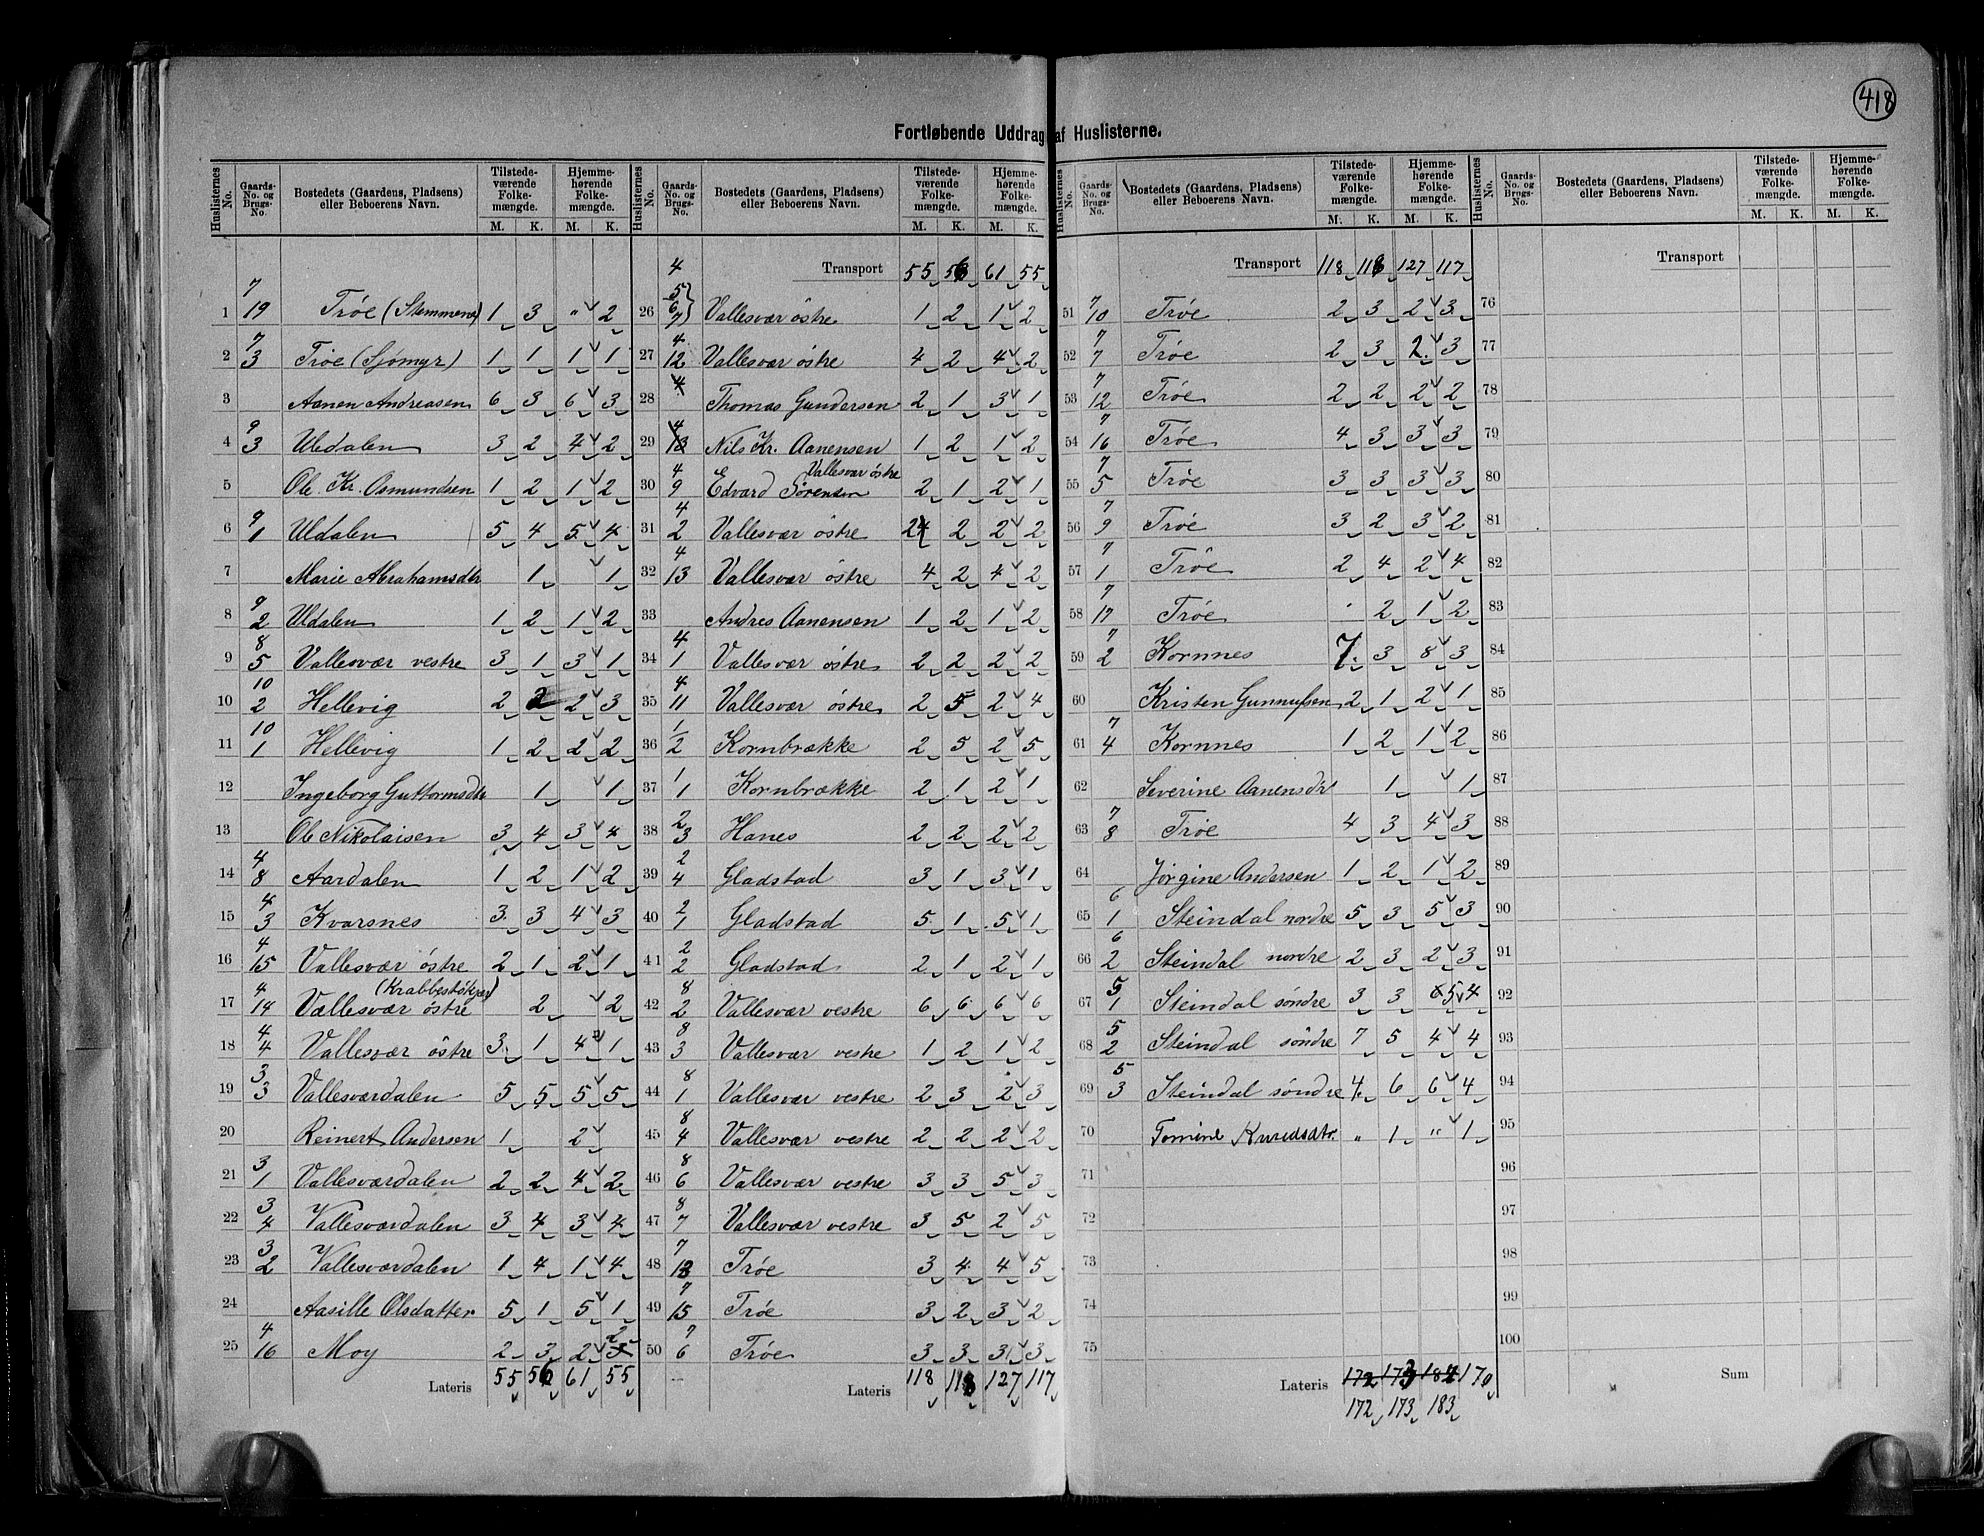 418
Fortløbende Uddrag af Huslisterne.
Huslisternes No. | Gaards-No. og Brugs-No. | Bostedets (Gaardens, Pladsens) eller Beboerens Navn. | Tilstedeværende Folkemængde. M. K. | Hjemmehørende Folkemængde. M. K.
1 | 7 19 | Trøe (Stemmena) | 1 | 3 | " | 2
2 | 7 3 | Trøe (Sjømyr) | 1 | 1 | 1 | 1
3 | Aanen Andreasen | 6 | 3 | 6 | 3
4 | 9 3 | Uldalen | 3 | 2 | 4 | 2
5 | Ole Kr. Osmundsen | 1 | 2 | 1 | 2
6 | 9 1 | Uldalen | 5 | 4 | 5 | 4
7 | Marie Abrahamsdtr | 1 | 1
8 | 9 2 | Uldalen | 1 | 2 | 1 | 2
9 | 8 5 | Vallesvær vestre | 3 | 1 | 3 | 1
10 | 10 2 | Hellevig | 2 | 2 | 2 | 3
11 | 10 1 | Hellevig | 1 | 2 | 2 | 2
12 | Ingeborg Guttormsdtr | 1 | 1
13 | Ole Nikolaisen | 3 | 4 | 3 | 4
14 | 4 8 | Aardalen | 1 | 2 | 1 | 2
15 | 4 3 | Kvarsnes | 3 | 3 | 4 | 3
16 | 4 15 | Vallesvær østre | 2 | 1 | 2 | 1
17 | 4 14 | Vallesvær østre (Krabbestøkjær) | 2 | 2
18 | 4 4 | Vallesvær østre | 3 | 1 | 4 | 1
19 | 3 3 | Vallesværdalen | 5 | 5 | 5 | 5
20 | Reinert Andersen | 1 | 2
21 | 3 1 | Vallesværdalen | 2 | 2 | 4 | 2
22 | 3 4 | Vallesværdalen | 3 | 4 | 3 | 4
23 | 3 2 | Vallesværdalen | 1 | 4 | 1 | 4
24 | Aasille Olsdatter | 5 | 1 | 5 | 1
25 | 4 16 | Moy | 2 | 3 | 2 | 2
Lateris | 55 | 56 | 61 | 55
Huslisternes No. | Gaards-No. og Brugs-No. | Bostedets (Gaardens, Pladsens) eller Beboerens Navn. | Tilstedeværende Folkemængde. M. K. | Hjemmehørende Folkemængde. M. K.
Transport | 55 | 56 | 61 | 55
26 | 4 5 6 7 | Vallesvær østre | 1 | 2 | 1 | 2
27 | 4 12 | Vallesvær østre | 4 | 2 | 4 | 2
28 | 4 | Thomas Gundersen | 2 | 1 | 3 | 1
29 | 4 | Nils Kr. Aanensen | 1 | 2 | 1 | 2
30 | 4 9 | Vallesvær østre Edvard Sørensen | 2 | 1 | 2 | 1
31 | 4 2 | Vallesvær østre | 2 | 2 | 2 | 2
32 | 4 13 | Vallesvær østre | 4 | 2 | 4 | 2
33 | Andres Aanensen | 1 | 2 | 1 | 2
34 | 4 1 | Vallesvær østre | 2 | 2 | 2 | 2
35 | 4 11 | Vallesvær østre | 2 | 5 | 2 | 4
36 | 1 2 | Kornbrække | 2 | 5 | 2 | 5
37 | 1 1 | Kornbrække | 2 | 1 | 2 | 1
38 | 2 3 | Hanes | 2 | 2 | 2 | 2
39 | 2 4 | Gladstad | 3 | 1 | 3 | 1
40 | 2 1 | Gladstad | 5 | 1 | 5 | 1
41 | 2 2 | Gladstad | 2 | 1 | 2 | 1
42 | 8 2 | Vallesvær vestre | 6 | 6 | 6 | 6
43 | 8 3 | Vallesvær vestre | 1 | 2 | 1 | 2
44 | 8 1 | Vallesvær vestre | 2 | 3 | 2 | 3
45 | 8 4 | Vallesvær vestre | 2 | 2 | 2 | 2
46 | 8 6 | Vallesvær vestre | 3 | 3 | 5 | 3
47 | 8 7 | Vallesvær vestre | 3 | 5 | 2 | 5
48 | 7 13 | Trøe | 3 | 4 | 4 | 5
49 | 7 15 | Trøe | 3 | 2 | 3 | 2
50 | 7 6 | Trøe | 3 | 3 | 3 | 3
Lateris | 118 | 118 | 127 | 117
Huslisternes No. | Gaards-No. og Brugs-No. | Bostedets (Gaardens, Pladsens) eller Beboerens Navn. | Tilstedeværende Folkemængde. M. K. | Hjemmehørende Folkemængde. M. K.
Transport | 118 | 118 | 127 | 117
51 | 7 10 | Trøe | 2 | 3 | 2 | 3
52 | 7 7 | Trøe | 2 | 3 | 2 | 3
53 | 7 12 | Trøe | 2 | 2 | 2 | 2
54 | 7 16 | Trøe | 4 | 3 | 3 | 3
55 | 7 5 | Trøe | 3 | 3 | 3 | 3
56 | 7 9 | Trøe | 3 | 2 | 3 | 2
57 | 7 1 | Trøe | 2 | 4 | 2 | 4
58 | 7 17 | Trøe | · | 2 | 1 | 2
59 | 7 2 | Kornnes | 7 | 3 | 8 | 3
60 | Kristen Gunnufsen | 2 | 1 | 2 | 1
61 | 7 4 | Kornnes | 1 | 2 | 1 | 2
62 | Severine Aanensdtr | 1 | 1
63 | 7 8 | Trøe | 4 | 3 | 4 | 3
64 | Jørgine Andersen | 1 | 2 | 1 | 2
65 | 6 1 | Steindal nordre | 5 | 3 | 5 | 3
66 | 6 2 | Steindal nordre | 2 | 3 | 2 | 3
67 | 5 1 | Steindal søndre | 3 | 3 | 5 | 4
68 | 5 2 | Steindal søndre | 7 | 5 | 4 | 4
69 | 5 3 | Steindal søndre | 4 | 6 | 6 | 4
70 | Tomine Knudsdtr. | " | 1 | " | 1
71
72
73
74
75
Lateris | 172 | 173 | 182 | 170
172 | 173 | 183
Huslisternes No. | Gaards-No. og Brugs-No. | Bostedets (Gaardens, Pladsens) eller Beboerens Navn. | Tilstedeværende Folkemængde. M. K. | Hjemmehørende Folkemængde. M. K.
Transport
76
77
78
79
80
81
82
83
84
85
86
87
88
89
90
91
92
93
94
95
96
97
98
99
100
Sum